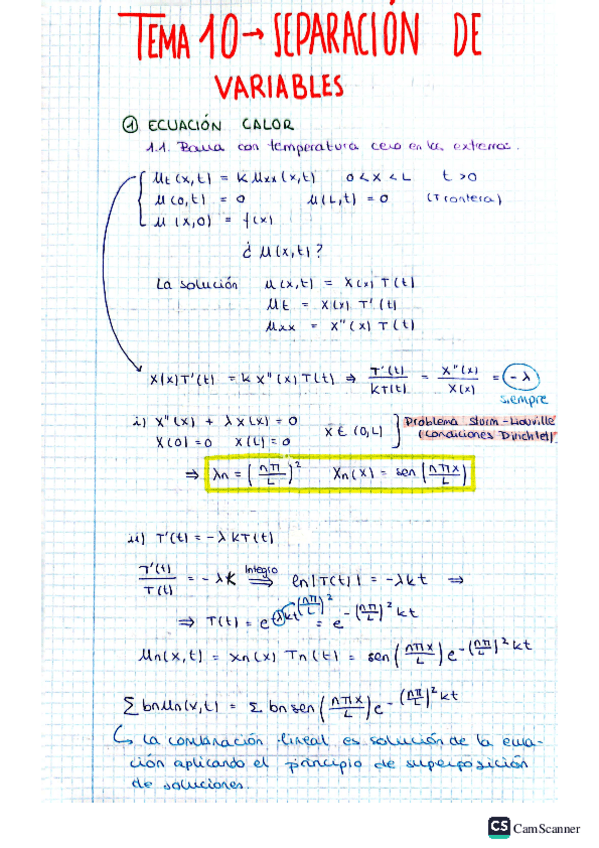 TEMA 10 → SEPARACIÓN DE
VARIABLES
① ECUACIÓN CALOR
1.1. Barra con temperatura cero en los extremos.
Ut(x,t) = k Uxx(x,t) 0<x<L t>0
U(0,t) = 0 U(L,t) = 0 (Frontera)
U(x,0) = f(x)
¿ U(x,t)?
La solución U(x,t) = X(x) T(t)
Ut = X(x) T'(t)
Uxx = X''(x) T(t)
X(x)T'(t) = k X''(x) T(t) ⇒ T'(t)/kT(t) = X''(x)/X(x) = -λ
siempre
i) X''(x) + λ X(x) = 0 x ∈ (0,L) Problema Sturm-Liouville
X(0) = 0 X(L) = 0 (Condiciones Dirichlet)
⇒ λn = (nπ/L)² Xn(x) = sen(nπx/L)
ii) T'(t) = -λ kT(t)
T'(t)/T(t) = -λK Integro ⇒ ln|T(t)| = -λkt ⇒
⇒ T(t) = e^-λkt (nπ/L)² = e^-(nπ/L)² kt
Un(x,t) = Xn(x) Tn(t) = sen(nπx/L) e^-(nπ/L)² kt
∑ bn Un(x,t) = ∑ bn sen(nπx/L) e^-(nπ/L)² kt
↳ La combinación lineal es solución de la ecua-
ción aplicando el principio de superposición
de soluciones.
CS CamScanner